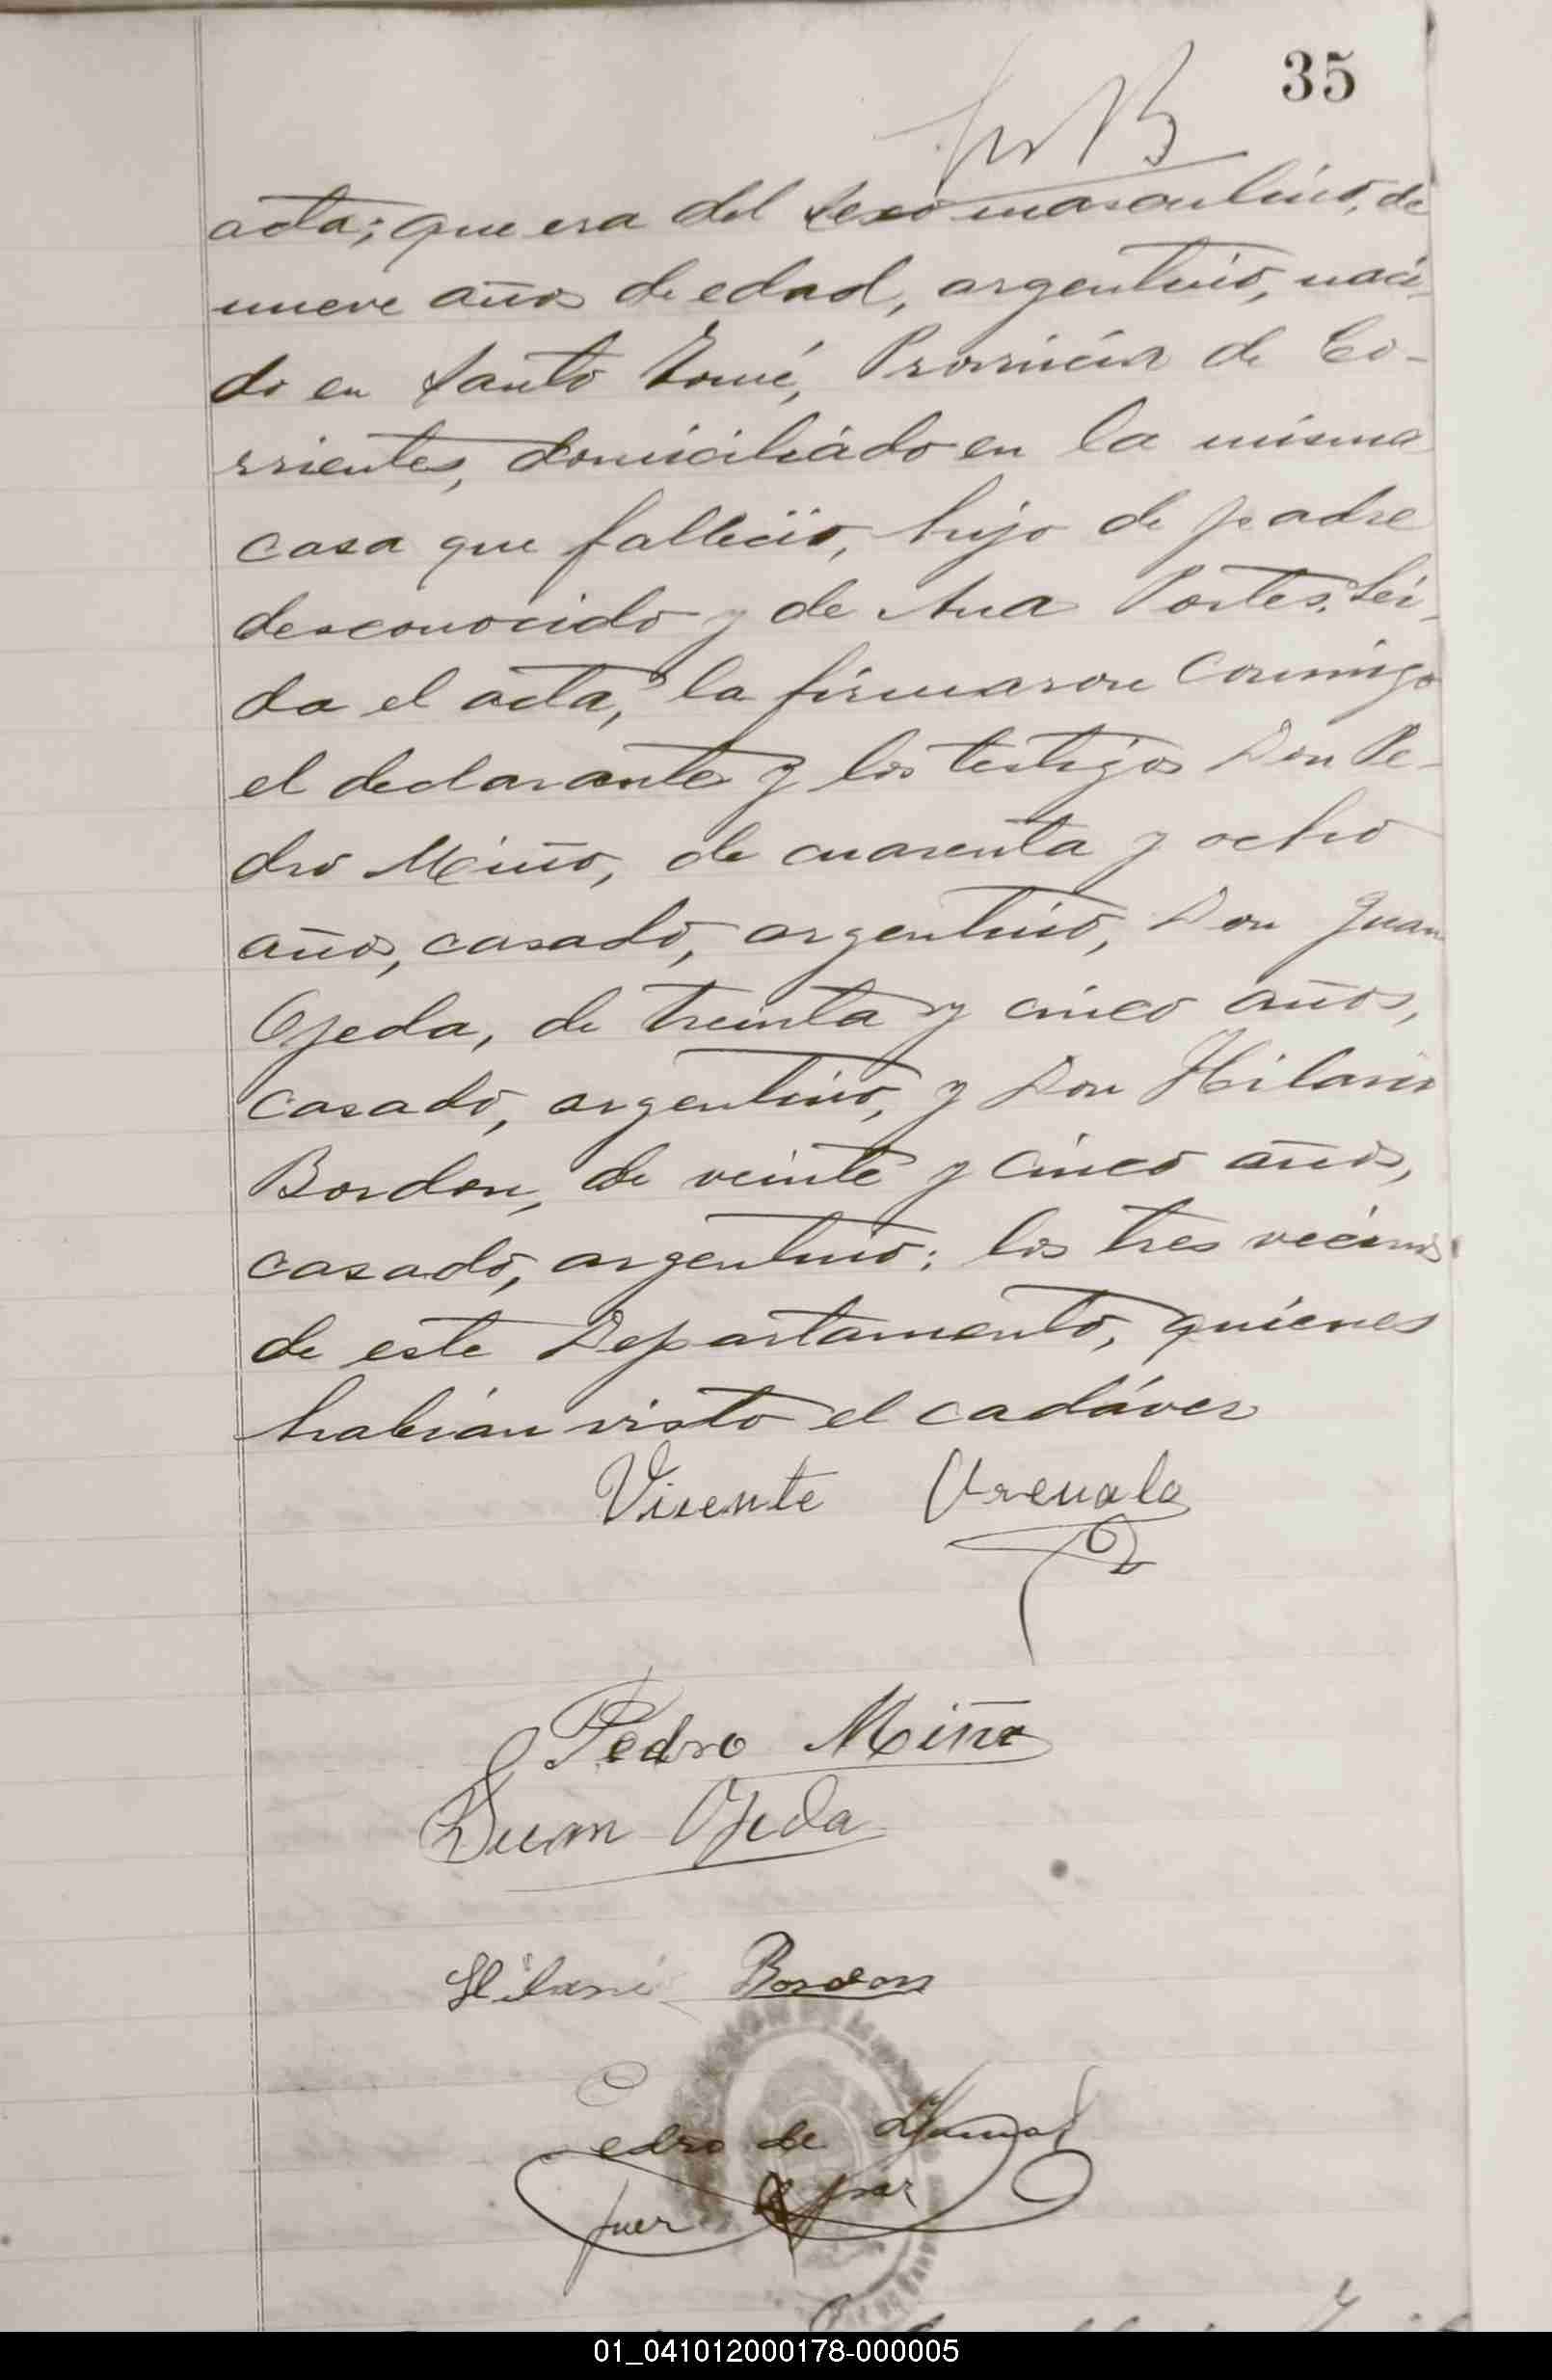 35
acta; que era del sexo masculino, de
nueve años de edad, argentino, naci-
do en Santo Tomé, Provincia de Co-
rrientes, domiciliado en la misma
casa que falleció, hijo de padre
desconocido y de Ana Portes. Leí-
da el acta, la firmaron conmigo
el declarante y los testigos Don Pe-
dro Miño, de cuarenta y ocho
años, casado, argentino, Don Juan
Ojeda, de treinta y cinco años,
casado, argentino, y Don Hilario
Bordon, de veinte y cinco años,
casado, argentino; los tres vecinos
de este Departamento, quienes
habían visto el cadáver
Vicente
Pedro Miño
Juan Ojeda
Hilario Bordon
Pedro de
Juez de Paz
01_041012000178-000005